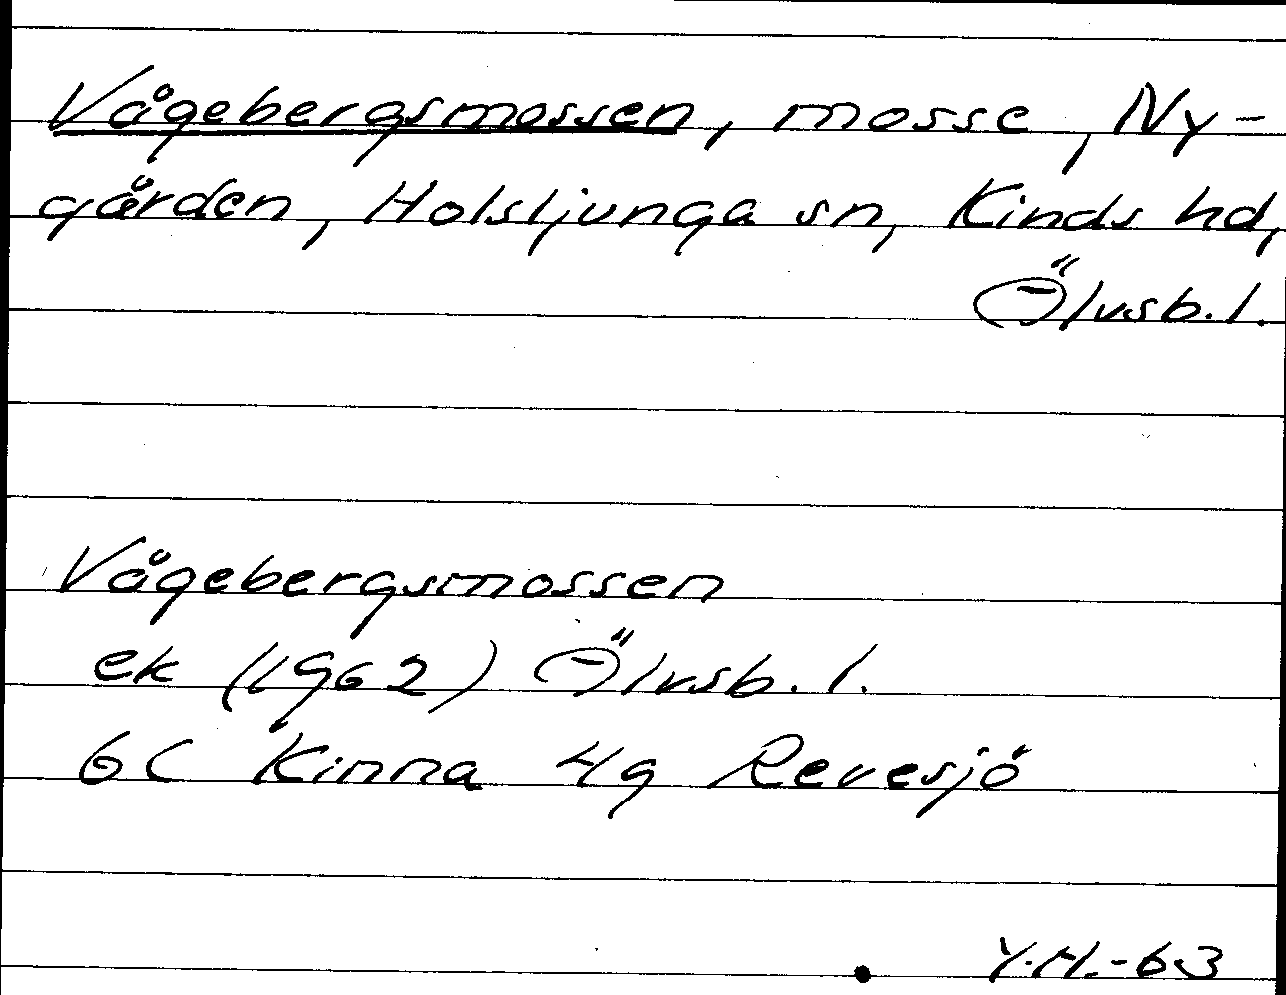 Vågebergsmossen, mosse, Ny-
gården, Holsljunga sn, Kinds hd,
Älvsb. l.
Vågebergsmossen
ek (1962) Älvsb. l.
6C Kinna 4g Revesjö
Y.H.-63